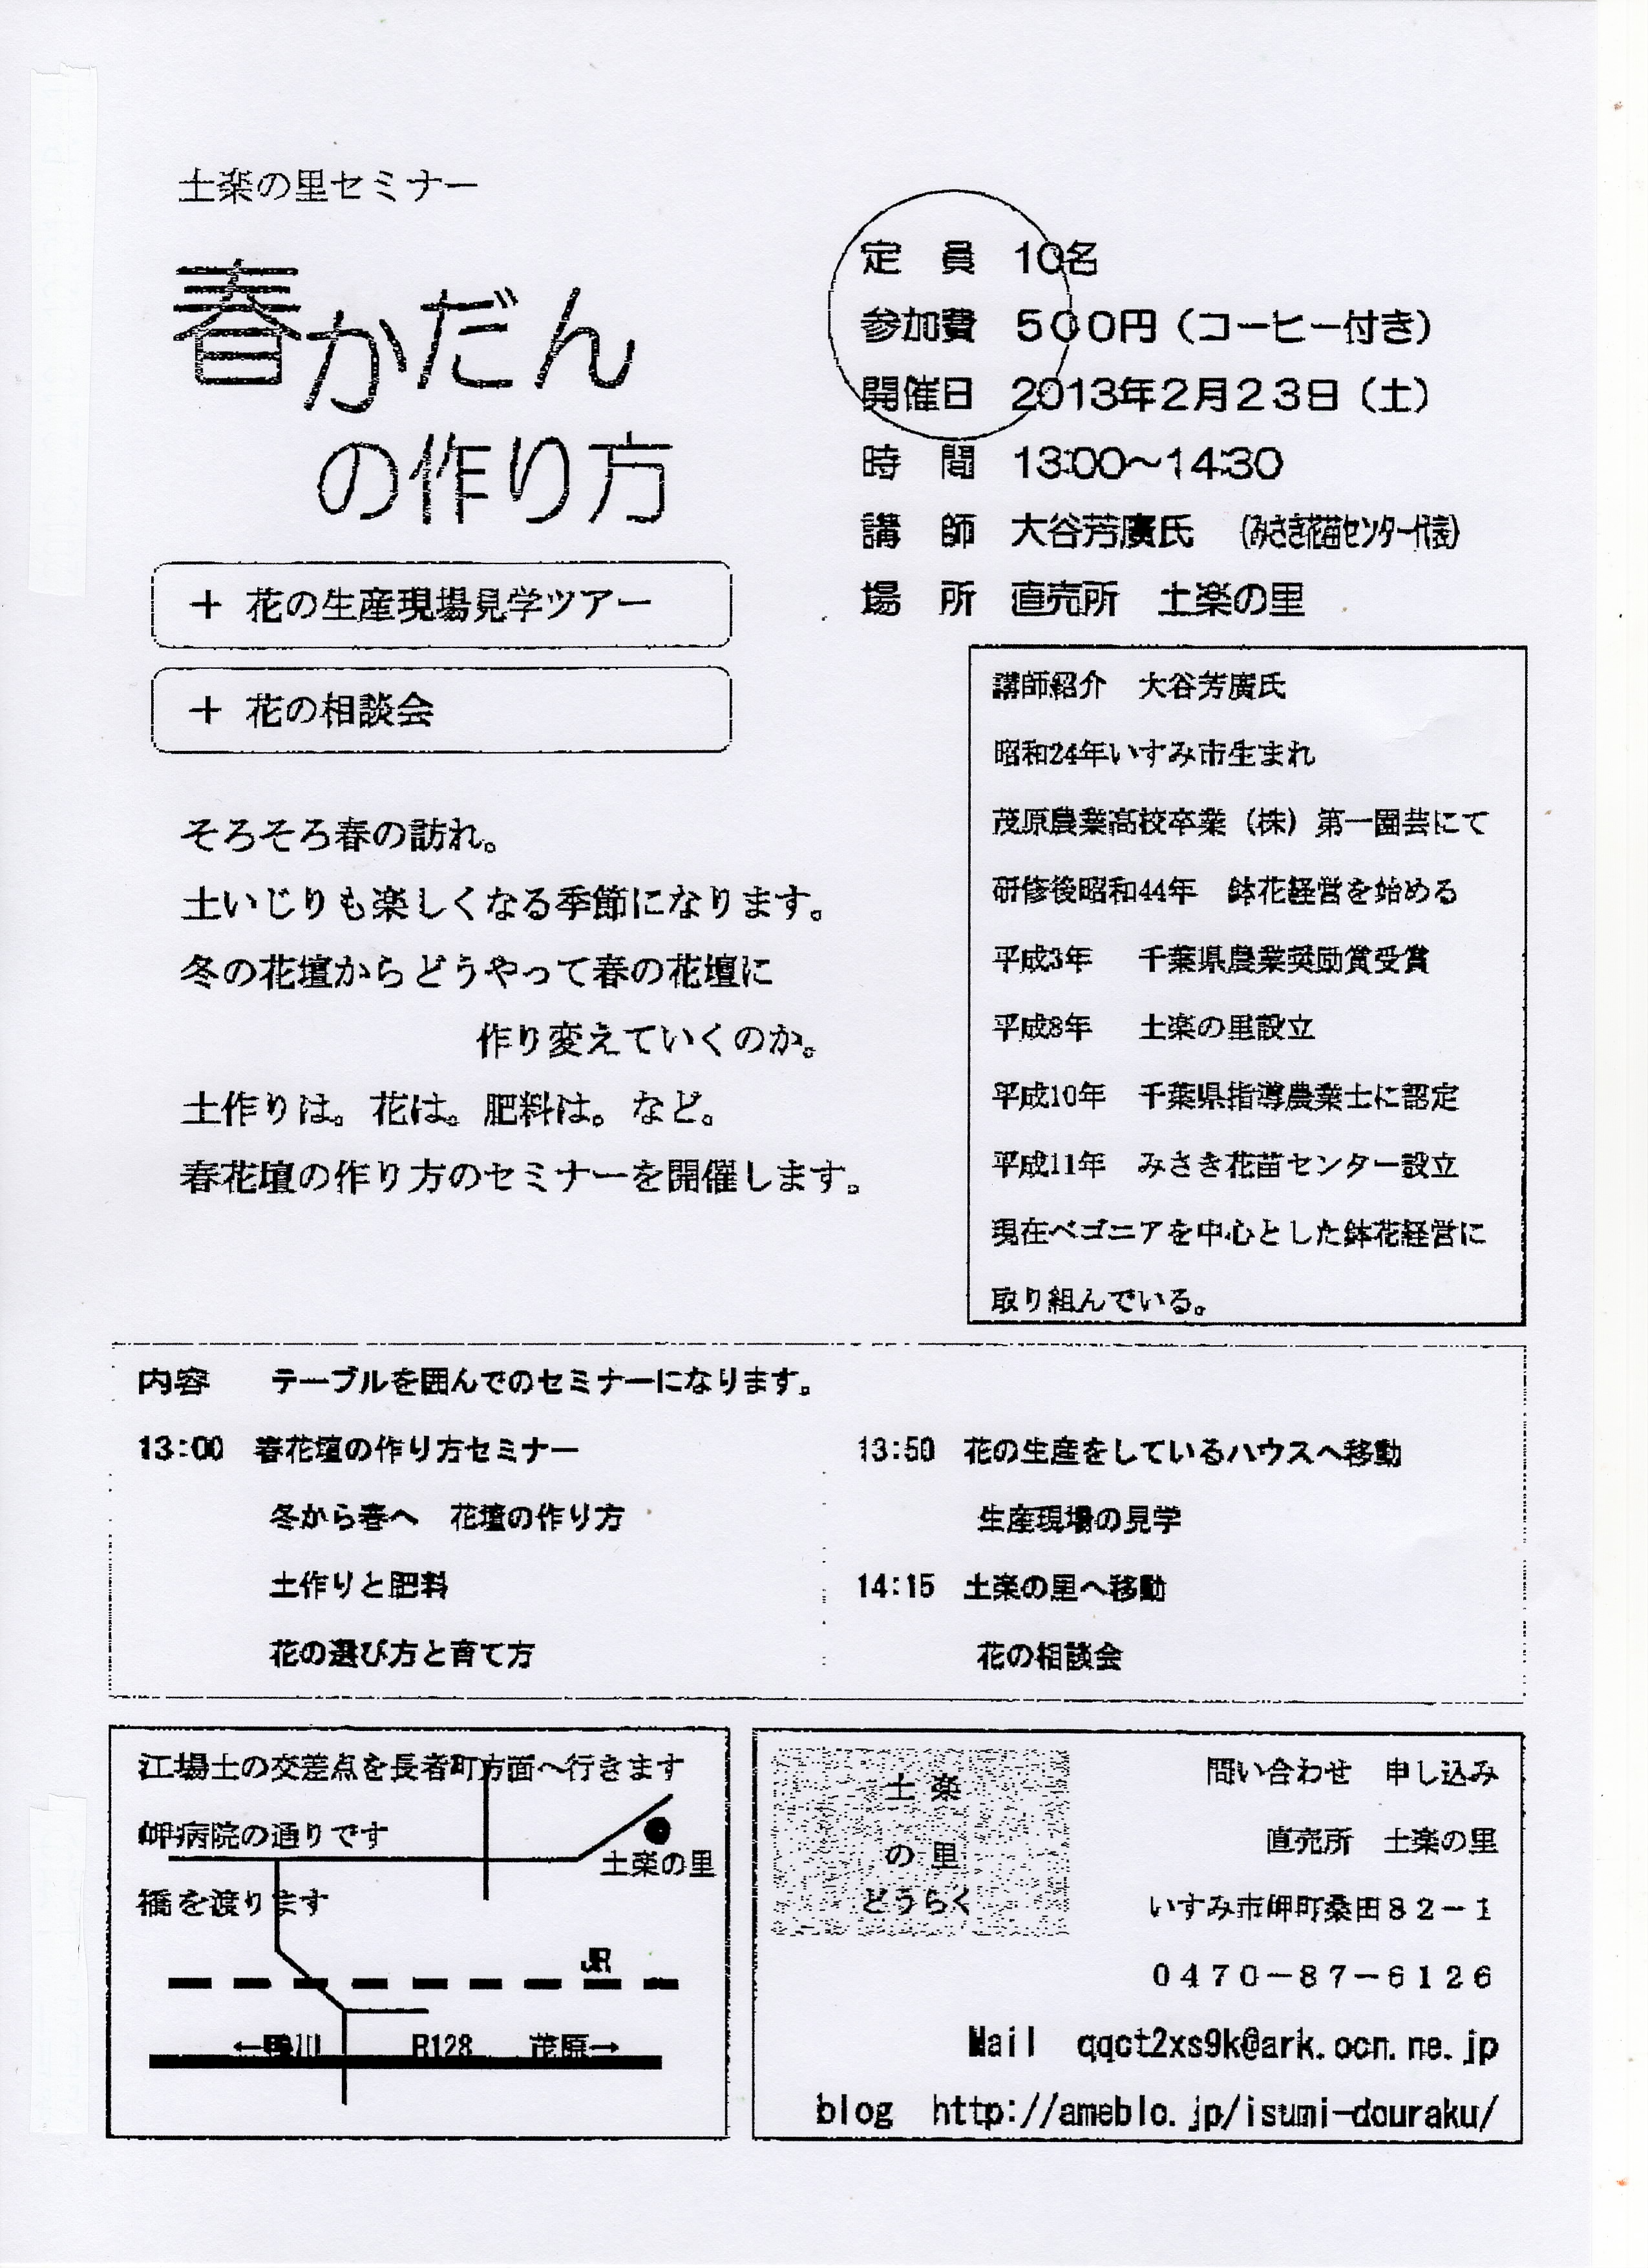 土楽の里セミナー
春かだん
の作り方
＋ 花の生産現場見学ツアー
＋ 花の相談会
定　員　10名
参加費　５００円（コーヒー付き）
開催日　2013年２月２３日（土）
時　間　13:00～14:30
講　師　大谷芳廣氏　（みさき花苗センター代表）
場　所　直売所　土楽の里
そろそろ春の訪れ。
土いじりも楽しくなる季節になります。
冬の花壇からどうやって春の花壇に
作り変えていくのか。
土作りは。花は。肥料は。など。
春花壇の作り方のセミナーを開催します。
講師紹介　大谷芳廣氏
昭和24年いすみ市生まれ
茂原農業高校卒業（株）第一園芸にて
研修後昭和44年　鉢花経営を始める
平成3年　千葉県農業奨励賞受賞
平成8年　土楽の里設立
平成10年　千葉県指導農業士に認定
平成11年　みさき花苗センター設立
現在ベゴニアを中心とした鉢花経営に
取り組んでいる。
内容　テーブルを囲んでのセミナーになります。
13:00　春花壇の作り方セミナー
冬から春へ　花壇の作り方
土作りと肥料
花の選び方と育て方
13:50　花の生産をしているハウスへ移動
生産現場の見学
14:15　土楽の里へ移動
花の相談会
江場土の交差点を長者町方面へ行きます
岬病院の通りです
土楽の里
橋を渡ります
JR
←鴨川　R128　茂原→
土楽
の里
どうらく
問い合わせ　申し込み
直売所　土楽の里
いすみ市岬町桑田８２－１
０４７０－８７－６１２６
Mail　qqct2xs9k@ark.ocn.ne.jp
blog　http://ameblo.jp/isumi-douraku/